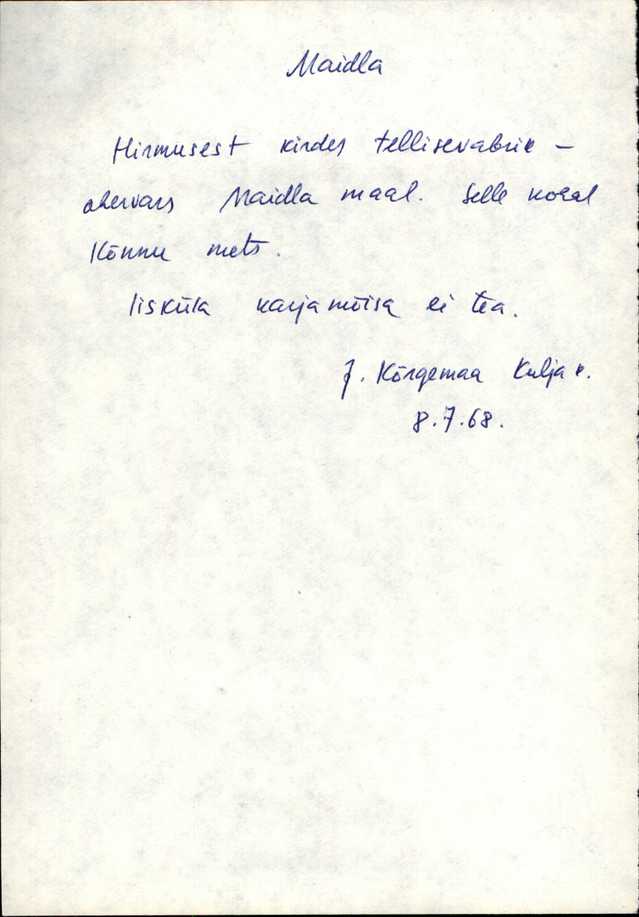 Maidla
Hirmusest kirdes tellisevabrik –
ahervars Maidla maal. Selle kohal
Kõnnu mets.
Iisküla karjamõisa ei tea.
J. Kõrgemaa Kulja k.
8.7.68.